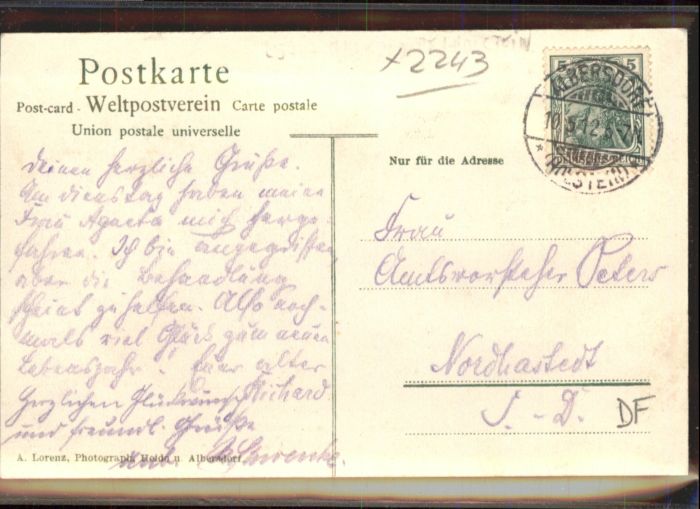 +2243
Postkarte
Post-card - Weltpostverein Carte postale
Union postale universelle
5 5
ALBERSDORF
10.5.12.6-7N
* (HOLSTEIN) *
Nur für die Adresse
deinen herzliche Grüße.
Am dienstag haben meine
Frau Agneta mich herge-
fahren. Ich bin angegriffen,
aber die Behandlung
scheint zu helfen. Also noch-
mals viel Glück zum neuen
Lebensjahr! Euer alter
Richard
Herzlichen Glückwunsch
und freundl. Grüße
Frau
Amtsvorsteher Peters
Nordhastedt
S.-D.
DF
A. Lorenz, Photograph, Heide u. Albersdorf.